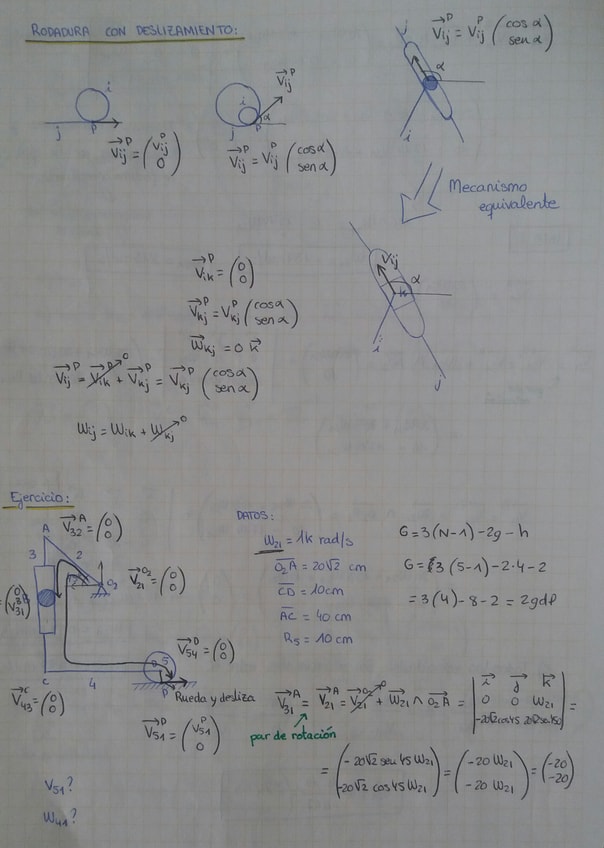 RODADURA CON DESLIZAMIENTO:
i
j
P
V⃗ij^P = (Vij^P
0)
i
j
P
α
V⃗ij^P
V⃗ij^P = Vij^P (cos α
sen α)
j
α
i
V⃗ij^P = Vij^P (cos α
sen α)
Mecanismo
equivalente
Vij
α
k
i
j
V⃗ik^P = (0
0)
V⃗kj^P = Vkj^P (cos α
sen α)
W⃗kj = 0 k⃗
V⃗ij^P = V⃗ik^P + V⃗kj^P = V⃗kj^P (cos α
sen α)
0
Wij = Wik + Wkj
0
Ejercicio:
A
V⃗32^A = (0
0)
3
2
O2
V⃗21^O2 = (0
0)
5
V⃗54^D = (0
0)
C
4
P
Rueda y desliza
V⃗43^C = (0
0)
V⃗51^P = (V51^P
0)
V51?
W41?
DATOS:
W21 = 1k rad/s
O2A = 20√2 cm
CD = 10cm
AC = 40 cm
R5 = 10 cm
G = 3(N-1) - 2g - h
G = 3(5-1) - 2·4 - 2
= 3(4) - 8 - 2 = 2gdl
V⃗31^A = V⃗21^A = V⃗21^O2 + W⃗21 ∧ O2A = | i⃗ j⃗ k⃗
0 0 W21
-20√2cos45 20√2sen45 0 | =
par de rotación
= (-20√2 sen 45 W21
-20√2 cos 45 W21) = (-20 W21
-20 W21) = (-20
-20)